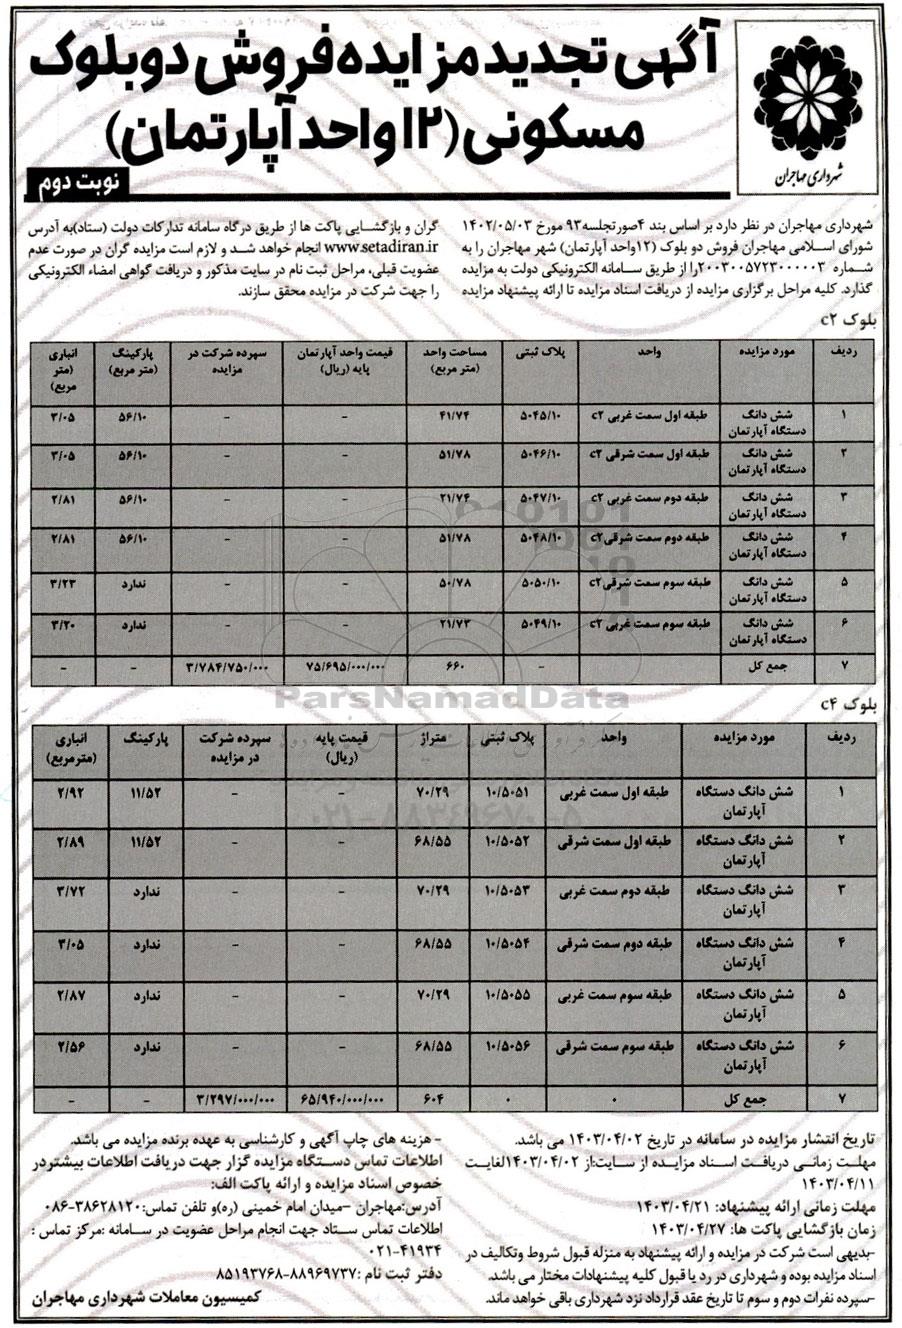 آگهی تجدید مزایده فروش دو بلوک
مسکونی (۱۲ واحد آپارتمان)
شهرداری مهاجران
نوبت دوم
شهرداری مهاجران در نظر دارد بر اساس بند ۴صورتجلسه۹۳ مورخ ۱۴۰۲/۰۵/۰۳
شورای اسلامی مهاجران فروش دو بلوک (۱۲واحد آپارتمان) شهر مهاجران را به
شماره ۲۰۰۳۰۰۵۷۲۳۰۰۰۰۰۳را از طریق سامانه الکترونیکی دولت به مزایده
گذارد. کلیه مراحل برگزاری مزایده از دریافت اسناد مزایده تا ارائه پیشنهاد مزایده
گران و بازگشایی پاکت ها از طریق درگاه سامانه تدارکات دولت (ستاد)به آدرس
www.setadiran.ir انجام خواهد شد و لازم است مزایده گران در صورت عدم
عضویت قبلی، مراحل ثبت نام در سایت مذکور و دریافت گواهی امضاء الکترونیکی
را جهت شرکت در مزایده محقق سازند.
بلوک c۲
ردیف مورد مزایده واحد پلاک ثبتی مساحت واحد (متر مربع) قیمت واحد آپارتمان پایه (ریال) سپرده شرکت در مزایده پارکینگ (متر مربع) انباری (متر مربع)
۱ شش دانگ دستگاه آپارتمان طبقه اول سمت غربی c۲ ۵۰۴۵/۱۰ ۴۱/۷۴ - - ۵۶/۱۰ ۳/۰۵
۲ شش دانگ دستگاه آپارتمان طبقه اول سمت شرقی c۲ ۵۰۴۶/۱۰ ۵۱/۷۸ - - ۵۶/۱۰ ۳/۰۵
۳ شش دانگ دستگاه آپارتمان طبقه دوم سمت غربی c۲ ۵۰۴۷/۱۰ ۲۱/۷۴ - - ۵۶/۱۰ ۲/۸۱
۴ شش دانگ دستگاه آپارتمان طبقه دوم سمت شرقی c۲ ۵۰۴۸/۱۰ ۵۱/۷۸ - - ۵۶/۱۰ ۲/۸۱
۵ شش دانگ دستگاه آپارتمان طبقه سوم سمت شرقی c۲ ۵۰۵۰/۱۰ ۵۰/۷۸ - - ندارد ۳/۲۳
۶ شش دانگ دستگاه آپارتمان طبقه سوم سمت غربی c۲ ۵۰۴۹/۱۰ ۲۱/۷۳ - - ندارد ۳/۲۰
۷ جمع کل - ۶۶۰ ۷۵/۶۹۵/۰۰۰/۰۰۰ ۳/۷۸۴/۷۵۰/۰۰۰ - -
ParsNamadData
۰۲۱-۸۸۳۴۹۶۷۰-۵
بلوک c۴
ردیف مورد مزایده واحد پلاک ثبتی متراژ قیمت پایه (ریال) سپرده شرکت در مزایده پارکینگ انباری (مترمربع)
۱ شش دانگ دستگاه آپارتمان طبقه اول سمت غربی ۱۰/۵۰۵۱ ۷۰/۲۹ - - ۱۱/۵۲ ۲/۹۲
۲ شش دانگ دستگاه آپارتمان طبقه اول سمت شرقی ۱۰/۵۰۵۲ ۶۸/۵۵ - - ۱۱/۵۲ ۲/۸۹
۳ شش دانگ دستگاه آپارتمان طبقه دوم سمت غربی ۱۰/۵۰۵۳ ۷۰/۲۹ - - ندارد ۳/۷۲
۴ شش دانگ دستگاه آپارتمان طبقه دوم سمت شرقی ۱۰/۵۰۵۴ ۶۸/۵۵ - - ندارد ۳/۰۵
۵ شش دانگ دستگاه آپارتمان طبقه سوم سمت غربی ۱۰/۵۰۵۵ ۷۰/۲۹ - - ندارد ۲/۸۷
۶ شش دانگ دستگاه آپارتمان طبقه سوم سمت شرقی ۱۰/۵۰۵۶ ۶۸/۵۵ - - ندارد ۲/۵۶
۷ جمع کل ۰ ۰ ۶۰۴ ۶۵/۹۴۰/۰۰۰/۰۰۰ ۳/۲۹۷/۰۰۰/۰۰۰ - -
تاریخ انتشار مزایده در سامانه در تاریخ ۱۴۰۳/۰۴/۰۲ می باشد.
مهلت زمانی دریافت اسناد مزایده از سایت:از ۱۴۰۳/۰۴/۰۲لغایت
۱۴۰۳/۰۴/۱۱
مهلت زمانی ارائه پیشنهاد: ۱۴۰۳/۰۴/۲۱
زمان بازگشایی پاکت ها: ۱۴۰۳/۰۴/۲۷
-بدیهی است شرکت در مزایده و ارائه پیشنهاد به منزله قبول شروط وتکالیف در
اسناد مزایده بوده و شهرداری در رد یا قبول کلیه پیشنهادات مختار می باشد.
-سپرده نفرات دوم و سوم تا تاریخ عقد قرارداد نزد شهرداری باقی خواهد ماند.
- هزینه های چاپ آگهی و کارشناسی به عهده برنده مزایده می باشد.
اطلاعات تماس دستگاه مزایده گزار جهت دریافت اطلاعات بیشتردر
خصوص اسناد مزایده و ارائه پاکت الف:
آدرس:مهاجران –میدان امام خمینی (ره)و تلفن تماس:۳۸۶۲۸۱۲۰-۰۸۶
اطلاعات تماس ستاد جهت انجام مراحل عضویت در سامانه :مرکز تماس :
۰۲۱-۴۱۹۳۴
دفتر ثبت نام :۸۸۹۶۹۷۳۷-۸۵۱۹۳۷۶۸
کمیسیون معاملات شهرداری مهاجران